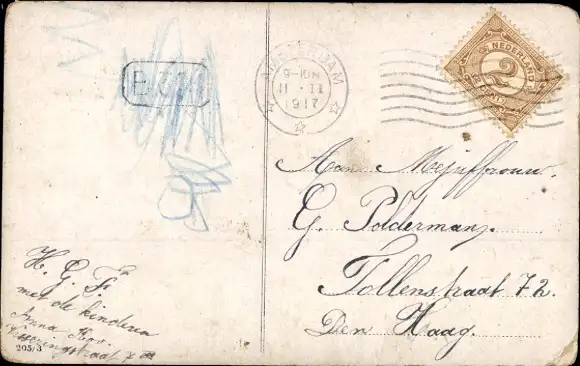 AMSTERDAM
6-10 N
11 · II
1917
NEDERLAND
2
CENT
Aan Mejuffrouw.
G. Polderman.
Tollenstraat 72.
Den Haag.
H. G. F.
met de kinderen
Anna
205/3